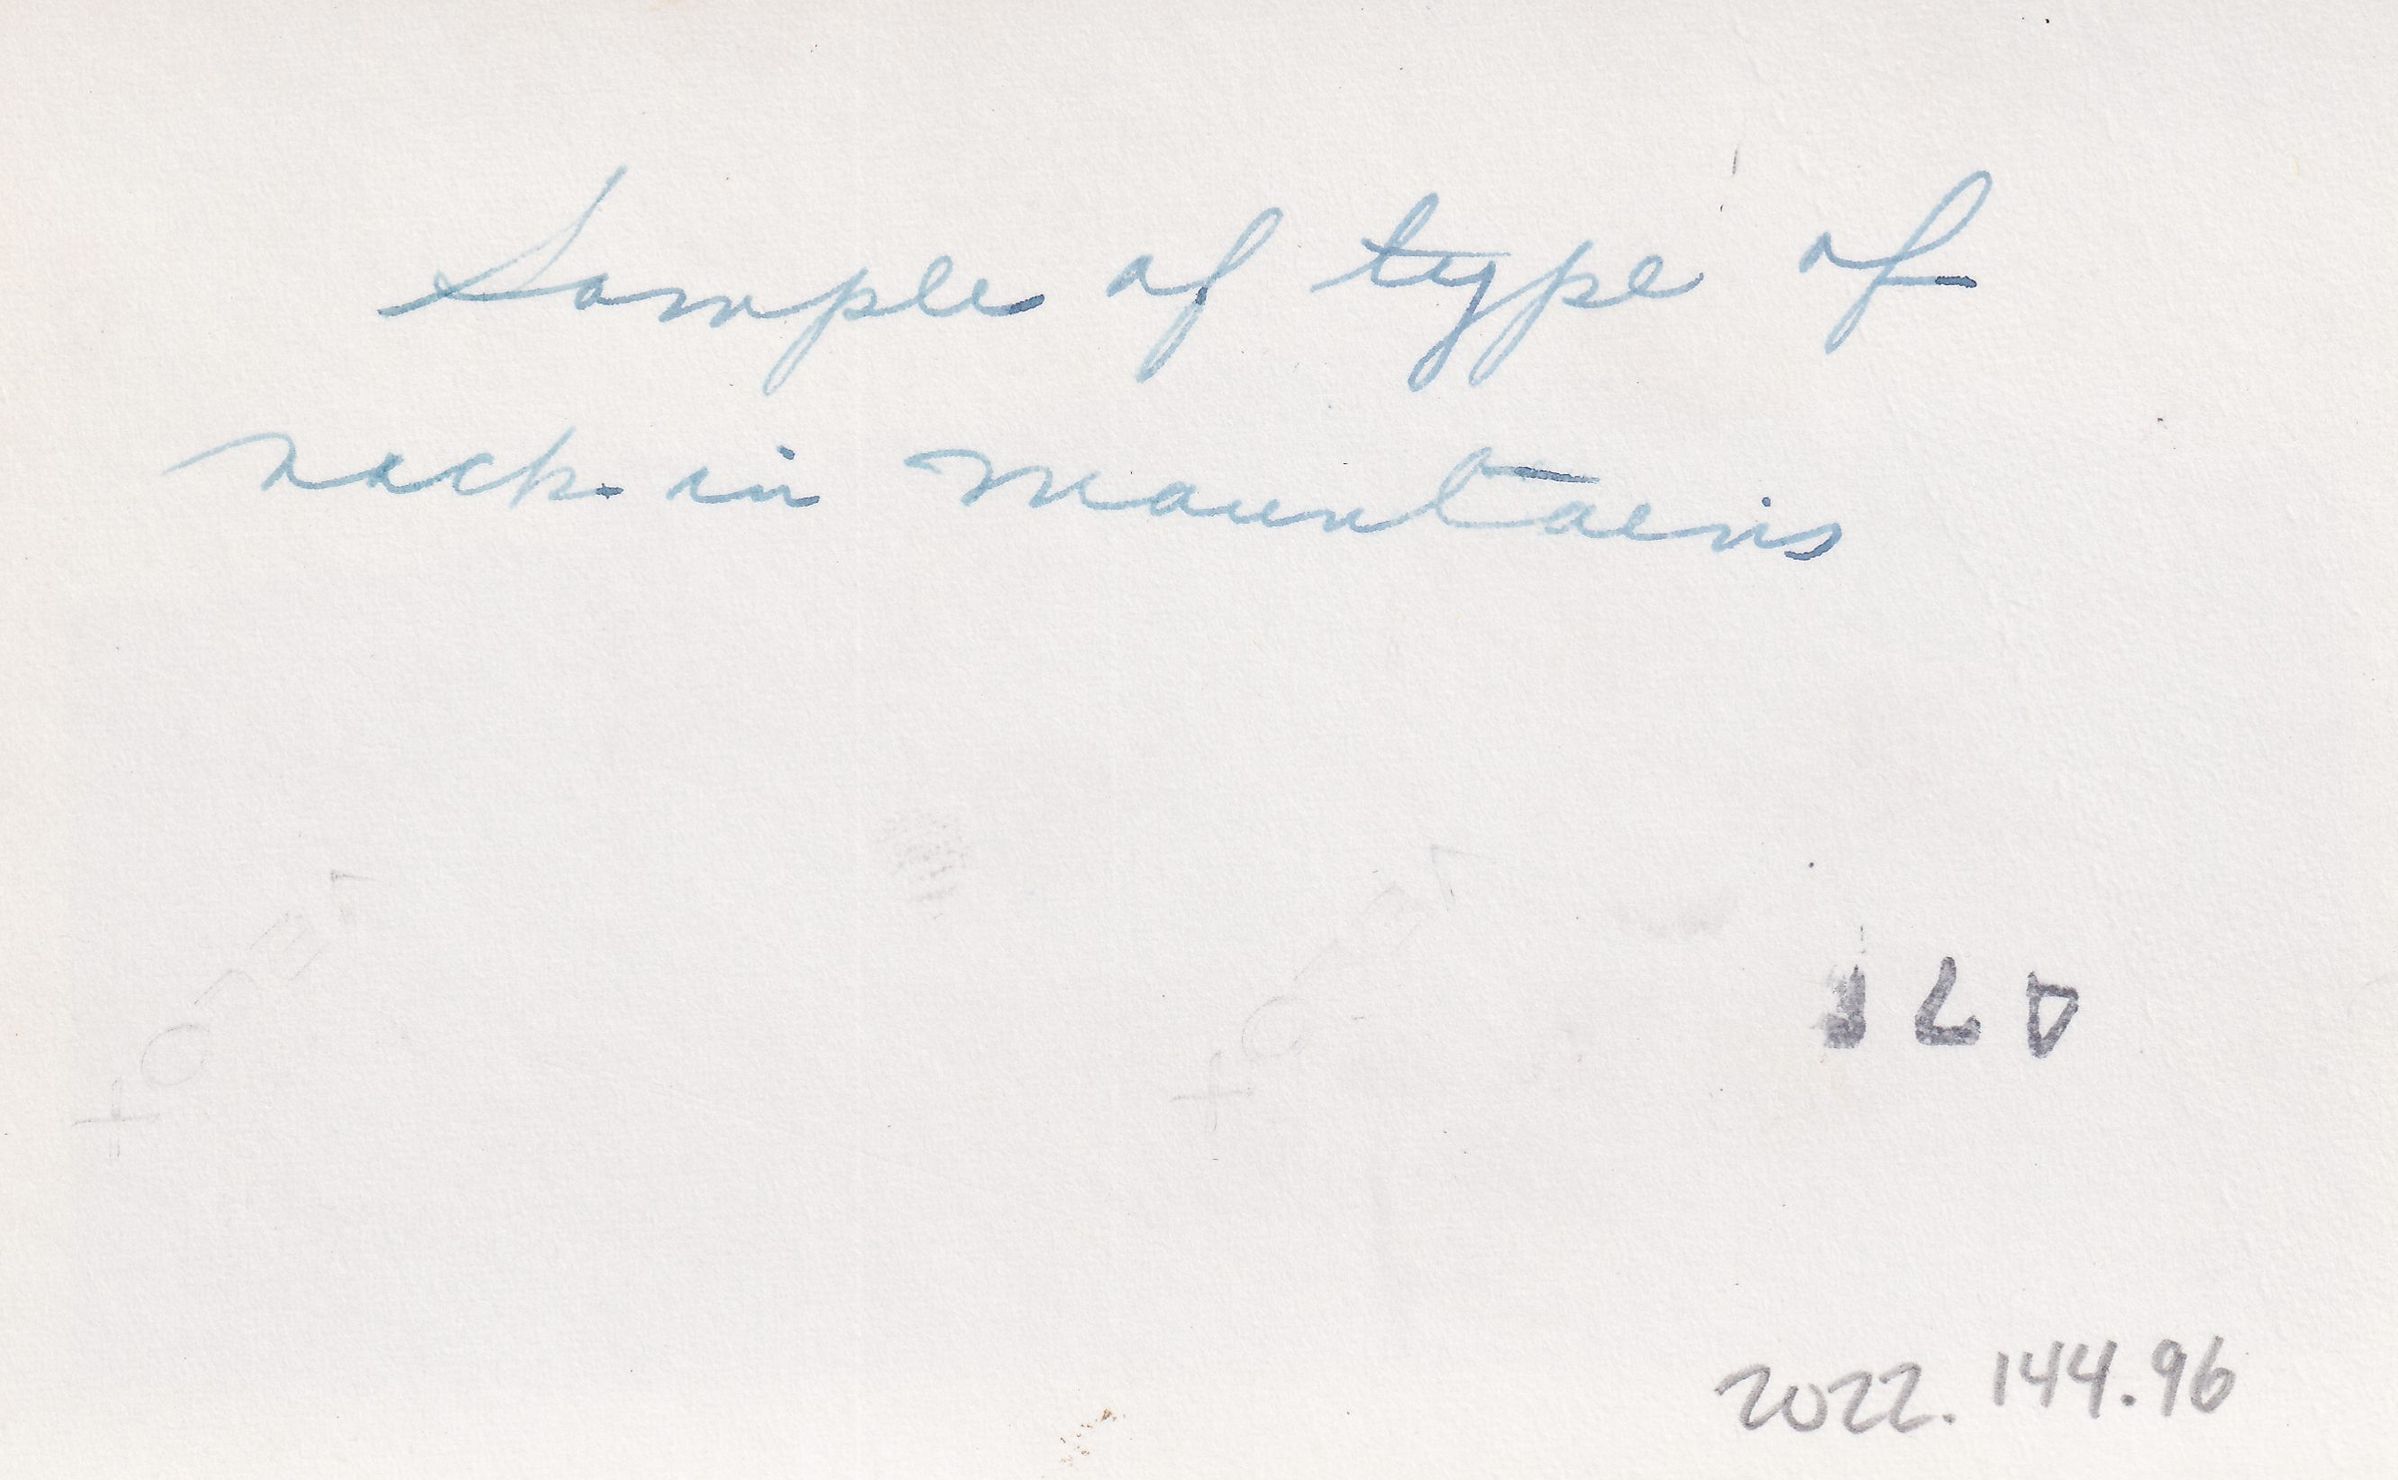 Sample of type of
rock in mountains
2022.144.96